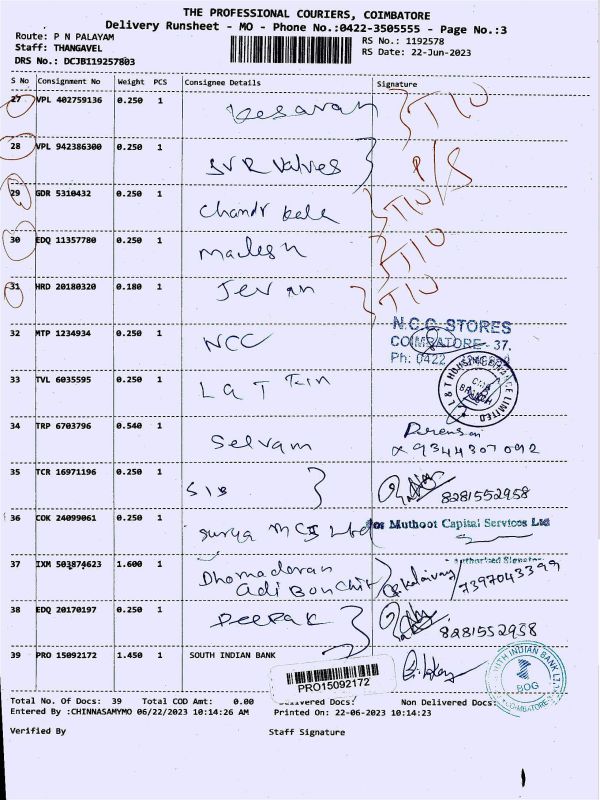 THE PROFESSIONAL COURIERS, COIMBATORE
Delivery Runsheet - MO - Phone No.:0422-3505555 - Page No.:3
Route: P N PALAYAM
Staff: THANGAVEL
DRS No.: DCJB119257803
RS No.: 1192578
RS Date: 22-Jun-2023
S No Consignment No Weight PCS Consignee Details Signature
27 VPL 402759136 0.250 1 Kesavan T10
28 VPL 942386300 0.250 1 SVR Valves P/S
29 GDR 5310432 0.250 1 Chandr kela T10
30 EDQ 11357780 0.250 1 T10
31 HRD 20180320 0.180 1 Jevan T10
32 MTP 1234934 0.250 1 NCC
N.C.C. STORES
COIMBATORE - 37.
Ph: 0422
33 TVL 6035595 0.250 1 L & T
L & T HOUSING FINANCE LIMITED
BRANCH
34 TRP 6703796 0.540 1 Selvam
9344307092
35 TCR 16971196 0.250 1 SIB 8281552958
36 COK 24099061 0.250 1 Surya
for Muthoot Capital Services Ltd
Authorised Signatory
37 IXM 503874623 1.600 1
7397043399
38 EDQ 20170197 0.250 1 Deepak 8281552958
39 PRO 15092172 1.450 1 SOUTH INDIAN BANK
PRO15092172
SOUTH INDIAN BANK LTD
BOG
COIMBATORE
Total No. Of Docs: 39 Total COD Amt: 0.00 Delivered Docs: Non Delivered Docs:
Entered By :CHINNASAMYMO 06/22/2023 10:14:26 AM Printed On: 22-06-2023 10:14:23
Verified By Staff Signature